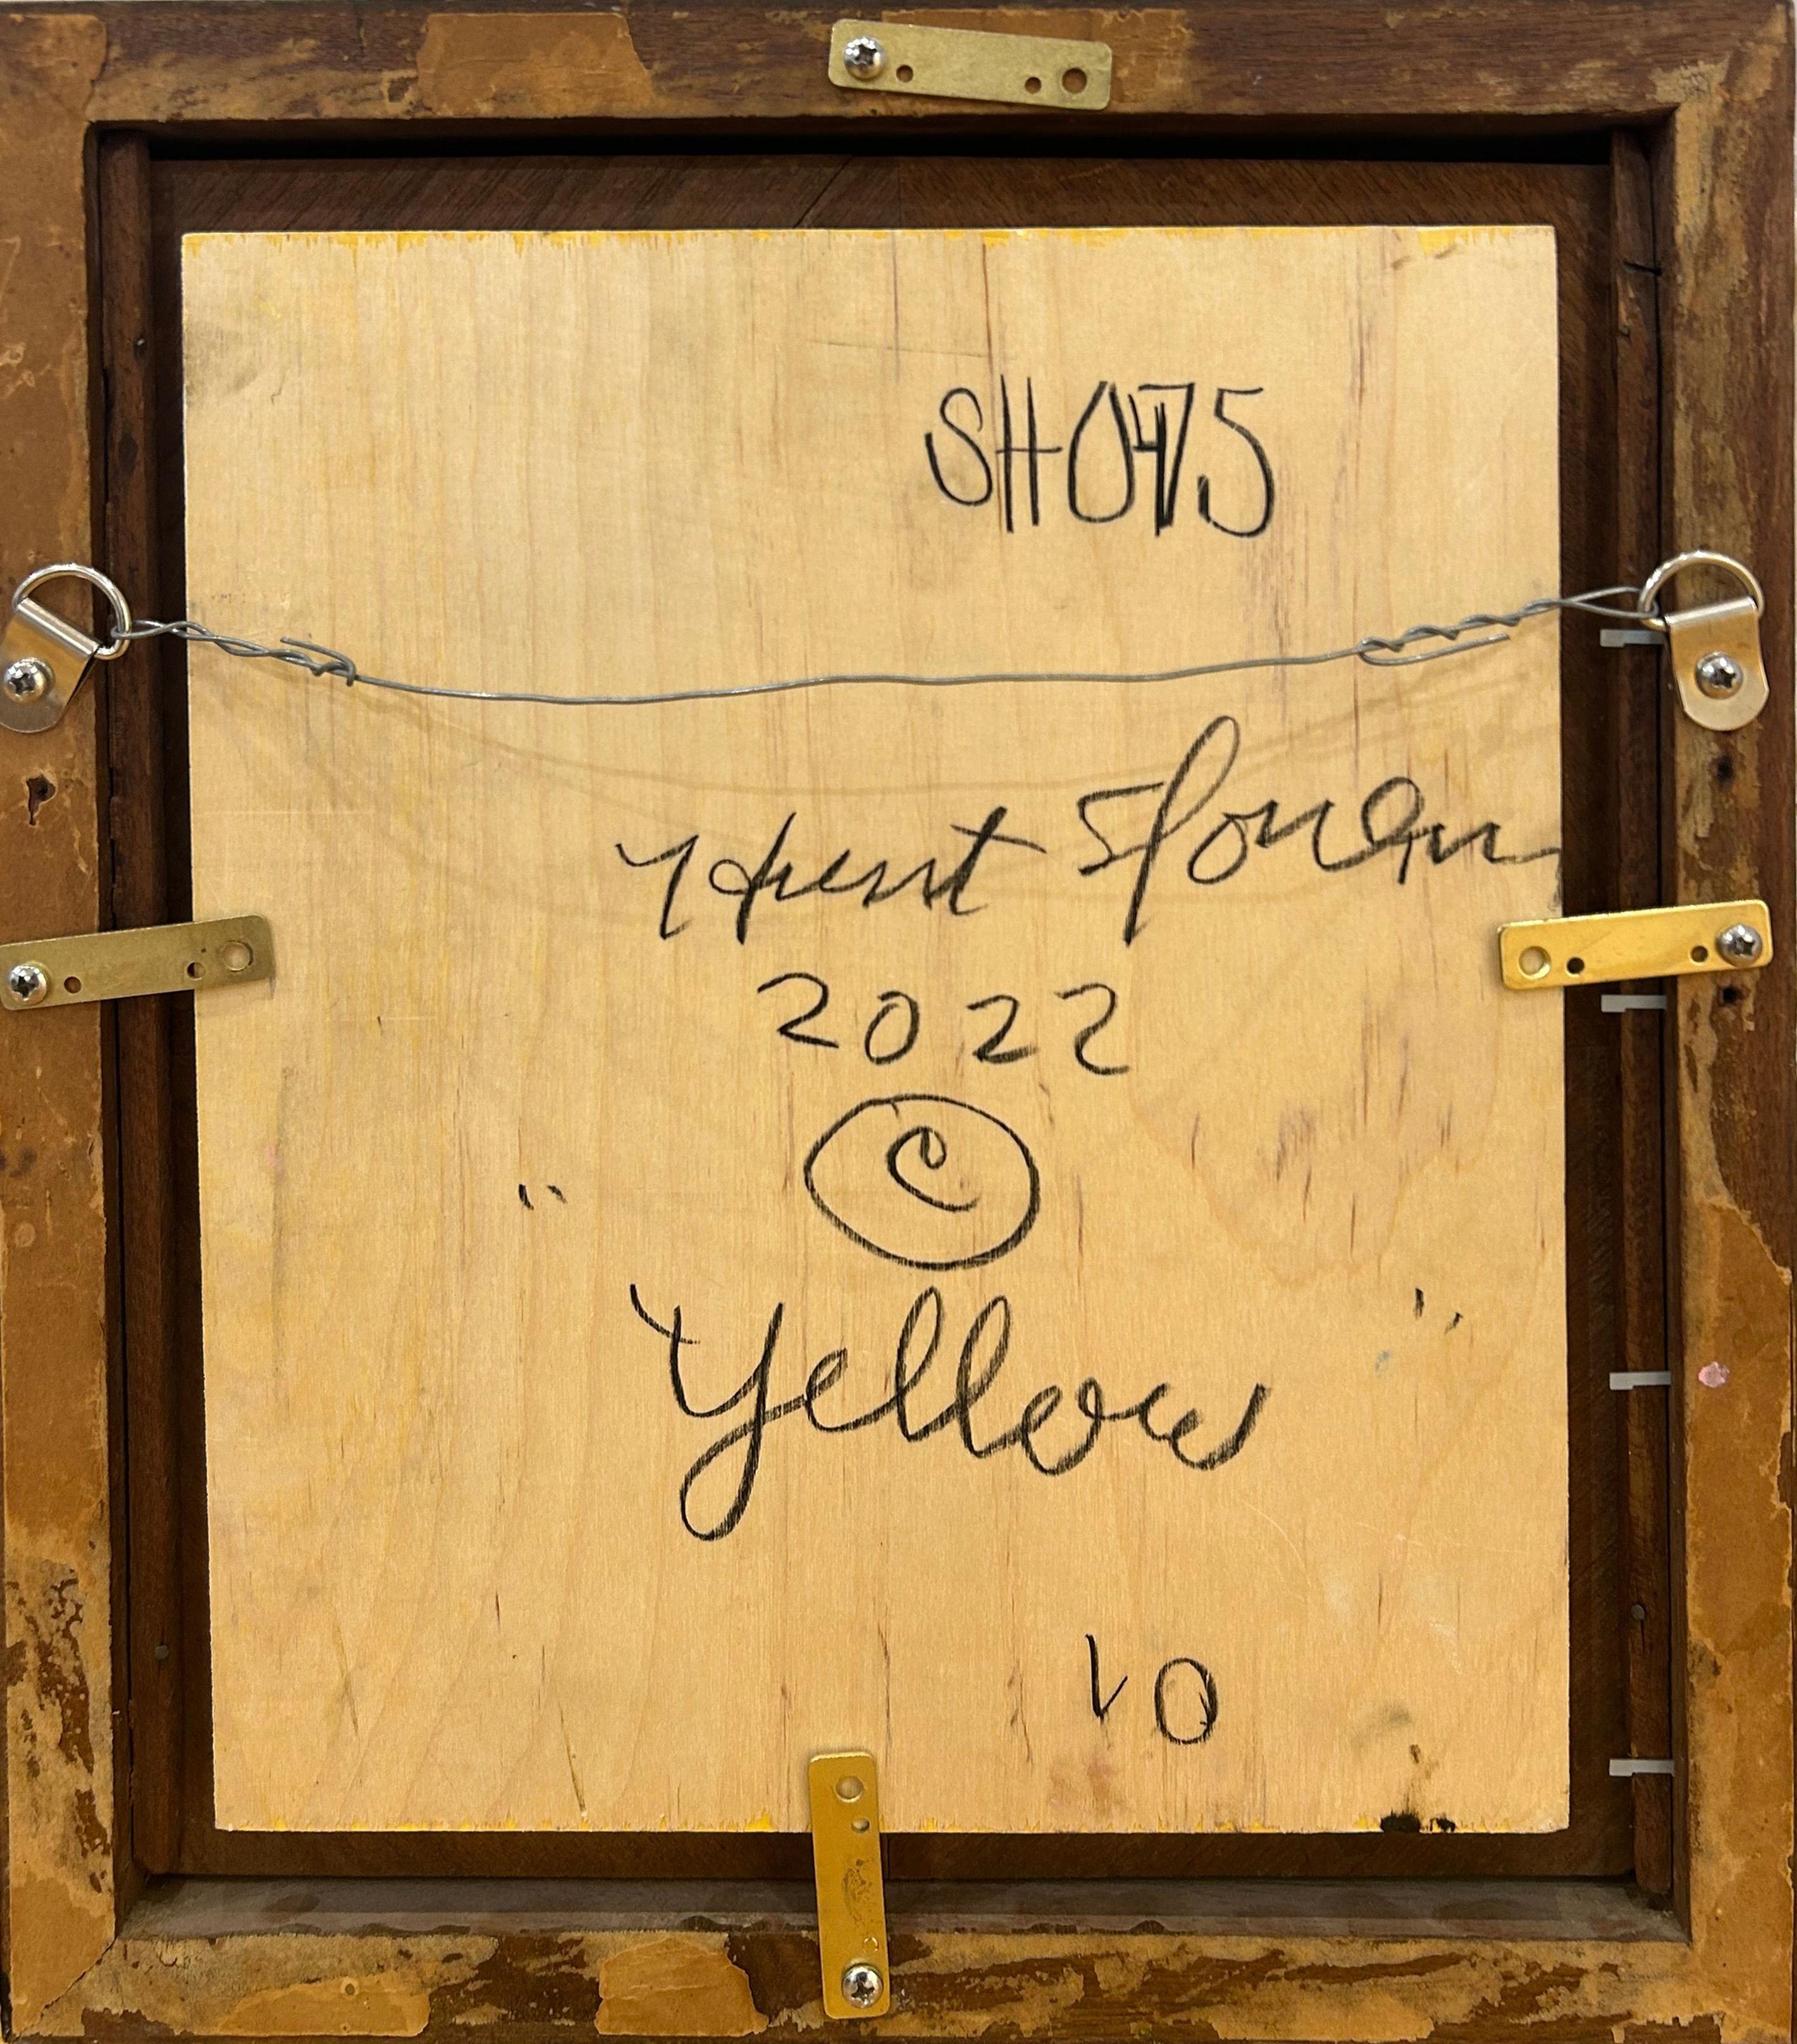 SH0475
Hunt Slonem
2022
©
"Yellow"
10